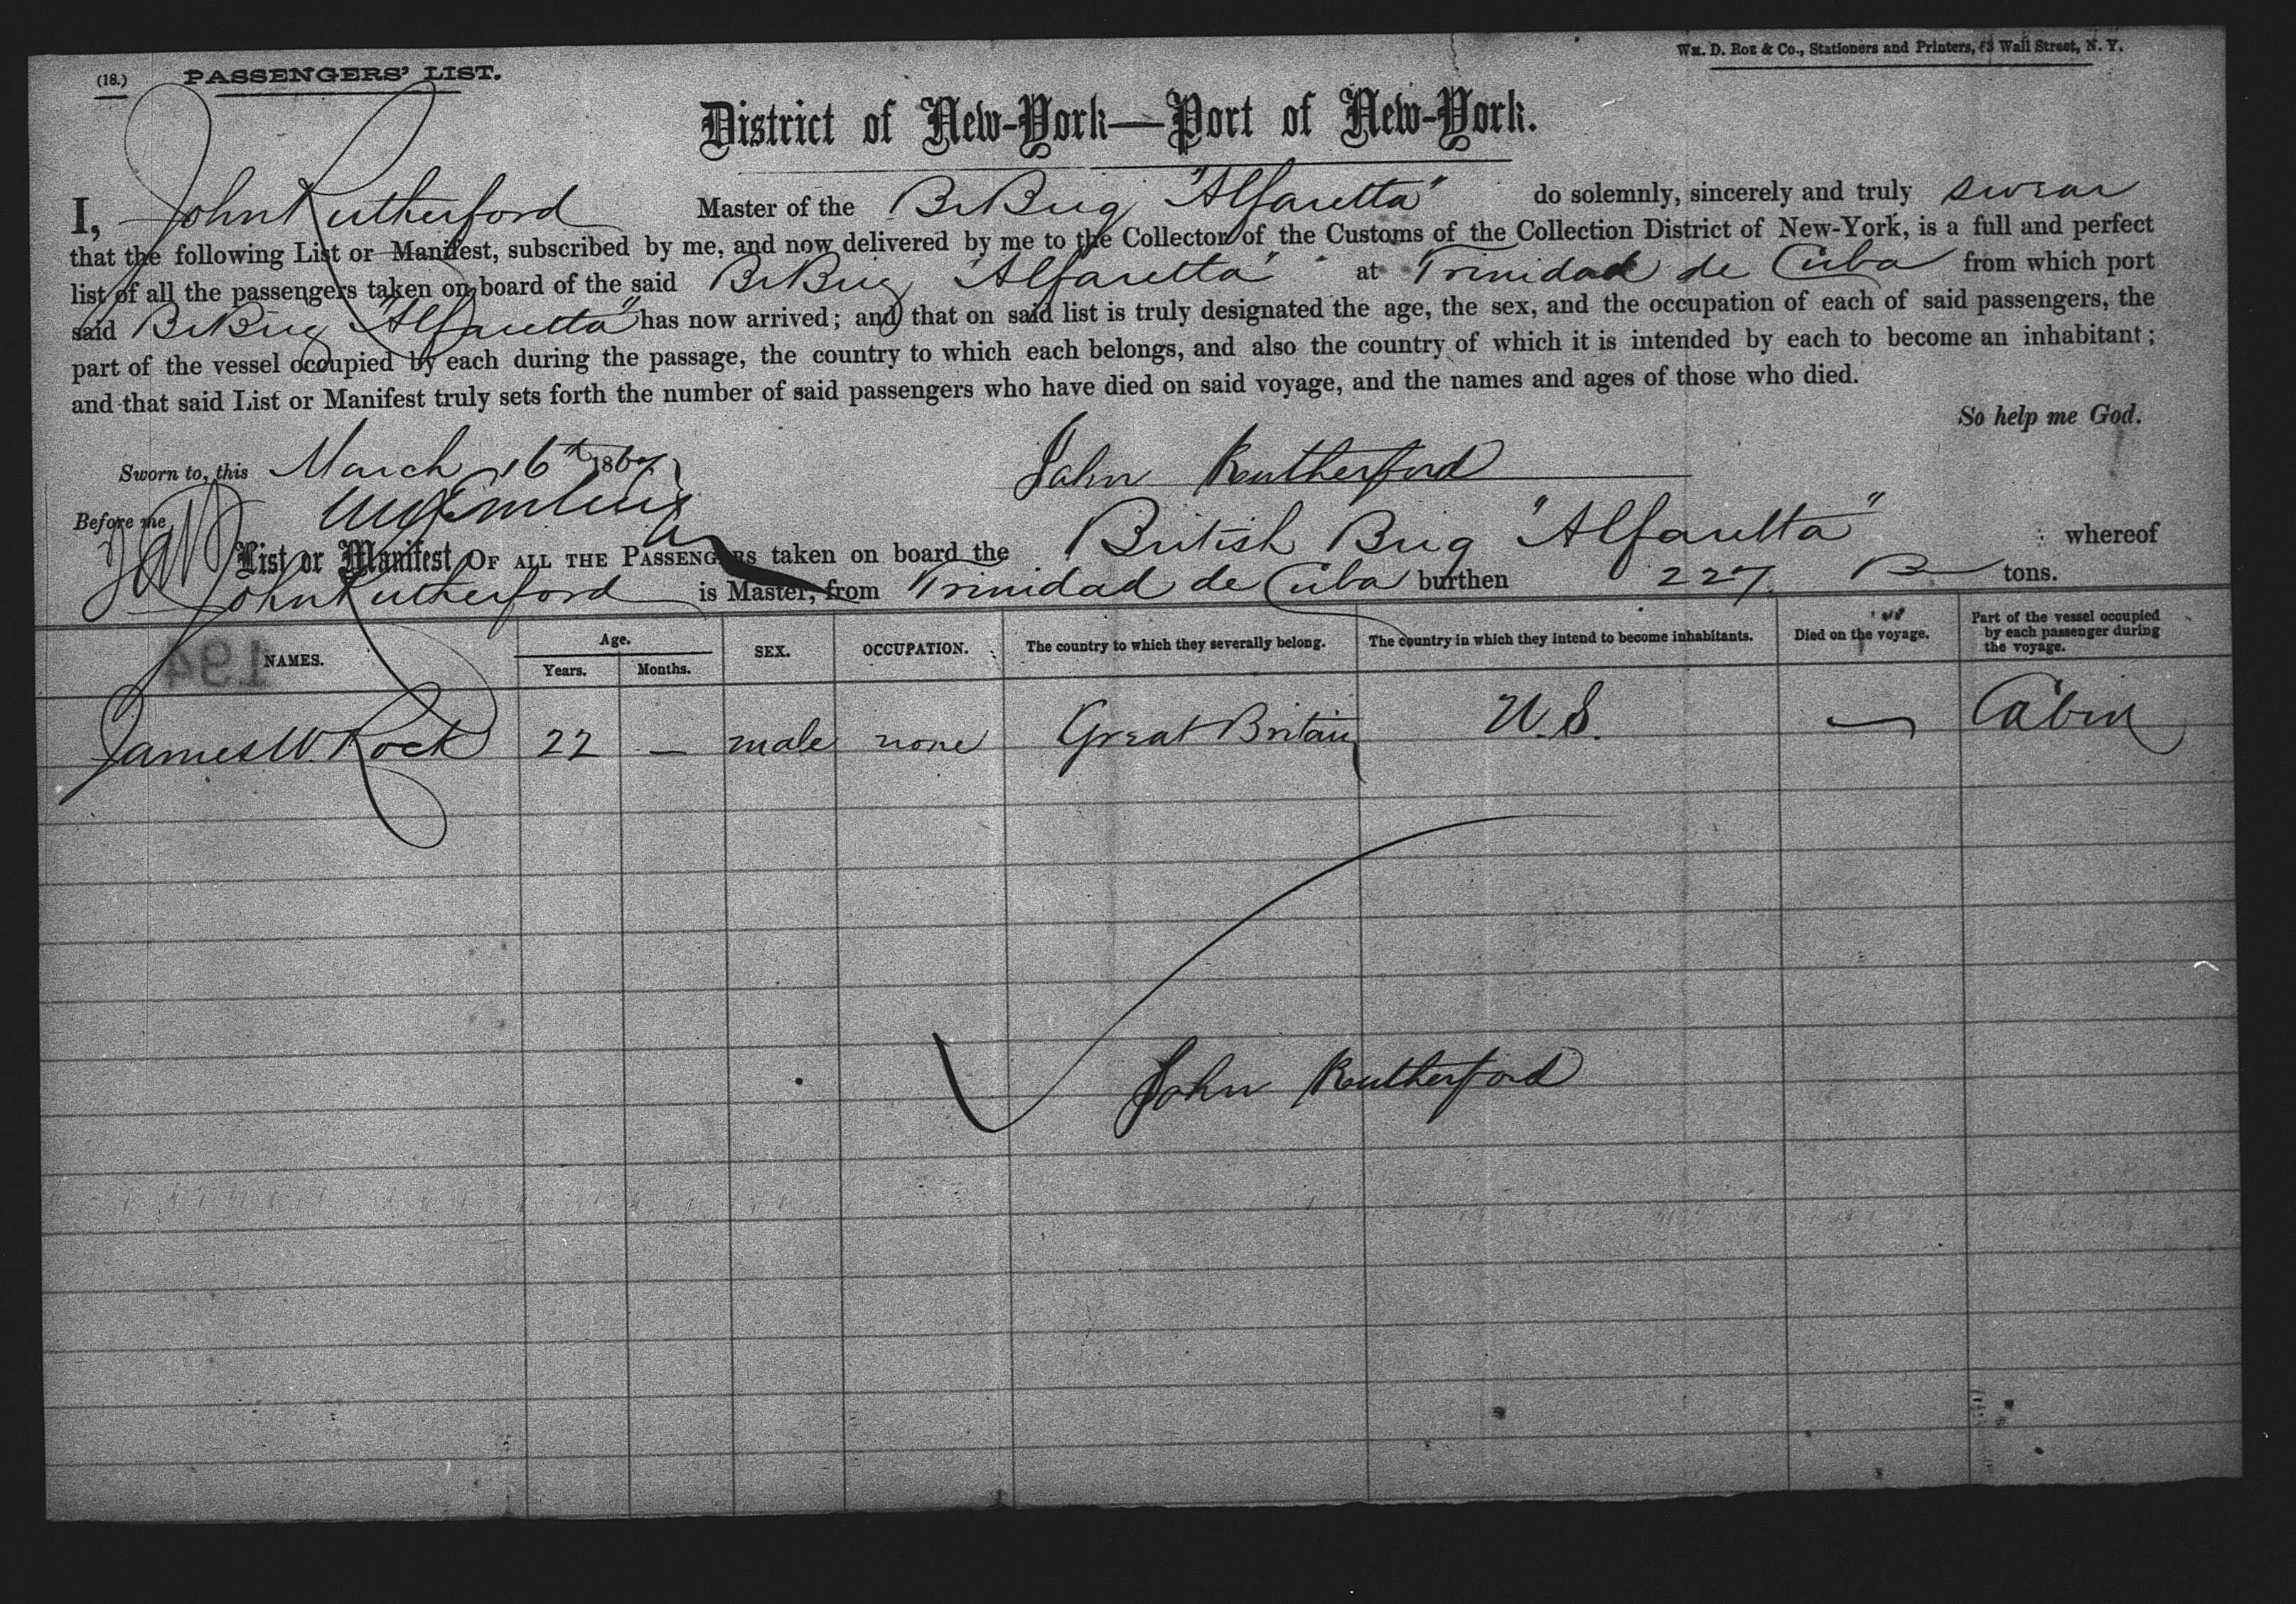 (18.) PASSENGERS' LIST.
Wm. D. Roe & Co., Stationers and Printers, 63 Wall Street, N. Y.
District of New-York—Port of New-York.
I, John Rutherford Master of the Br Brig "Alfaretta" do solemnly, sincerely and truly swear
that the following List or Manifest, subscribed by me, and now delivered by me to the Collector of the Customs of the Collection District of New-York, is a full and perfect
list of all the passengers taken on board of the said Br Brig "Alfaretta" at Trinidad de Cuba from which port
said Br Brig "Alfaretta" has now arrived; and that on said list is truly designated the age, the sex, and the occupation of each of said passengers, the
part of the vessel occupied by each during the passage, the country to which each belongs, and also the country of which it is intended by each to become an inhabitant;
and that said List or Manifest truly sets forth the number of said passengers who have died on said voyage, and the names and ages of those who died.
So help me God.
Sworn to, this March 16th 1867 John Rutherford
Before me
List or Manifest OF ALL THE PASSENGERS taken on board the British Brig "Alfaretta" whereof
John Rutherford is Master, from Trinidad de Cuba burthen 227 tons.
NAMES. Age. Years. Months. SEX. OCCUPATION. The country to which they severally belong. The country in which they intend to become inhabitants. Died on the voyage. Part of the vessel occupied by each passenger during the voyage.
194
James W. Rock 22 — male none Great Britain U.S. — Cabin
John Rutherford